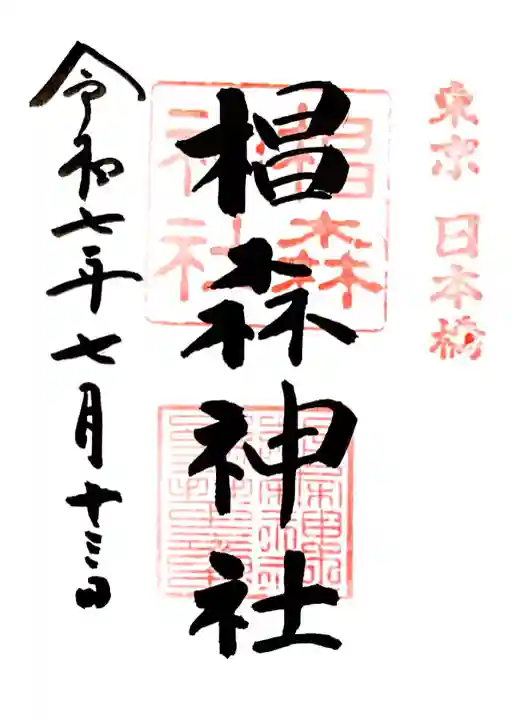 東京 日本橋
椙森神社
令和七年七月十三日
椙森
神社